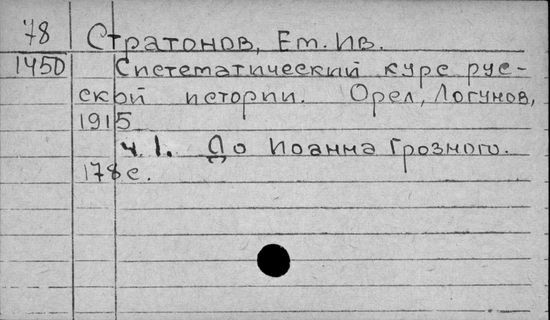 78
Стратонов, Ет. Ив.
1450
Систематический курс рус-
ской истории. Орел, Логунов,
1915
ч. 1. До Иоанна Грозного.
178 с.